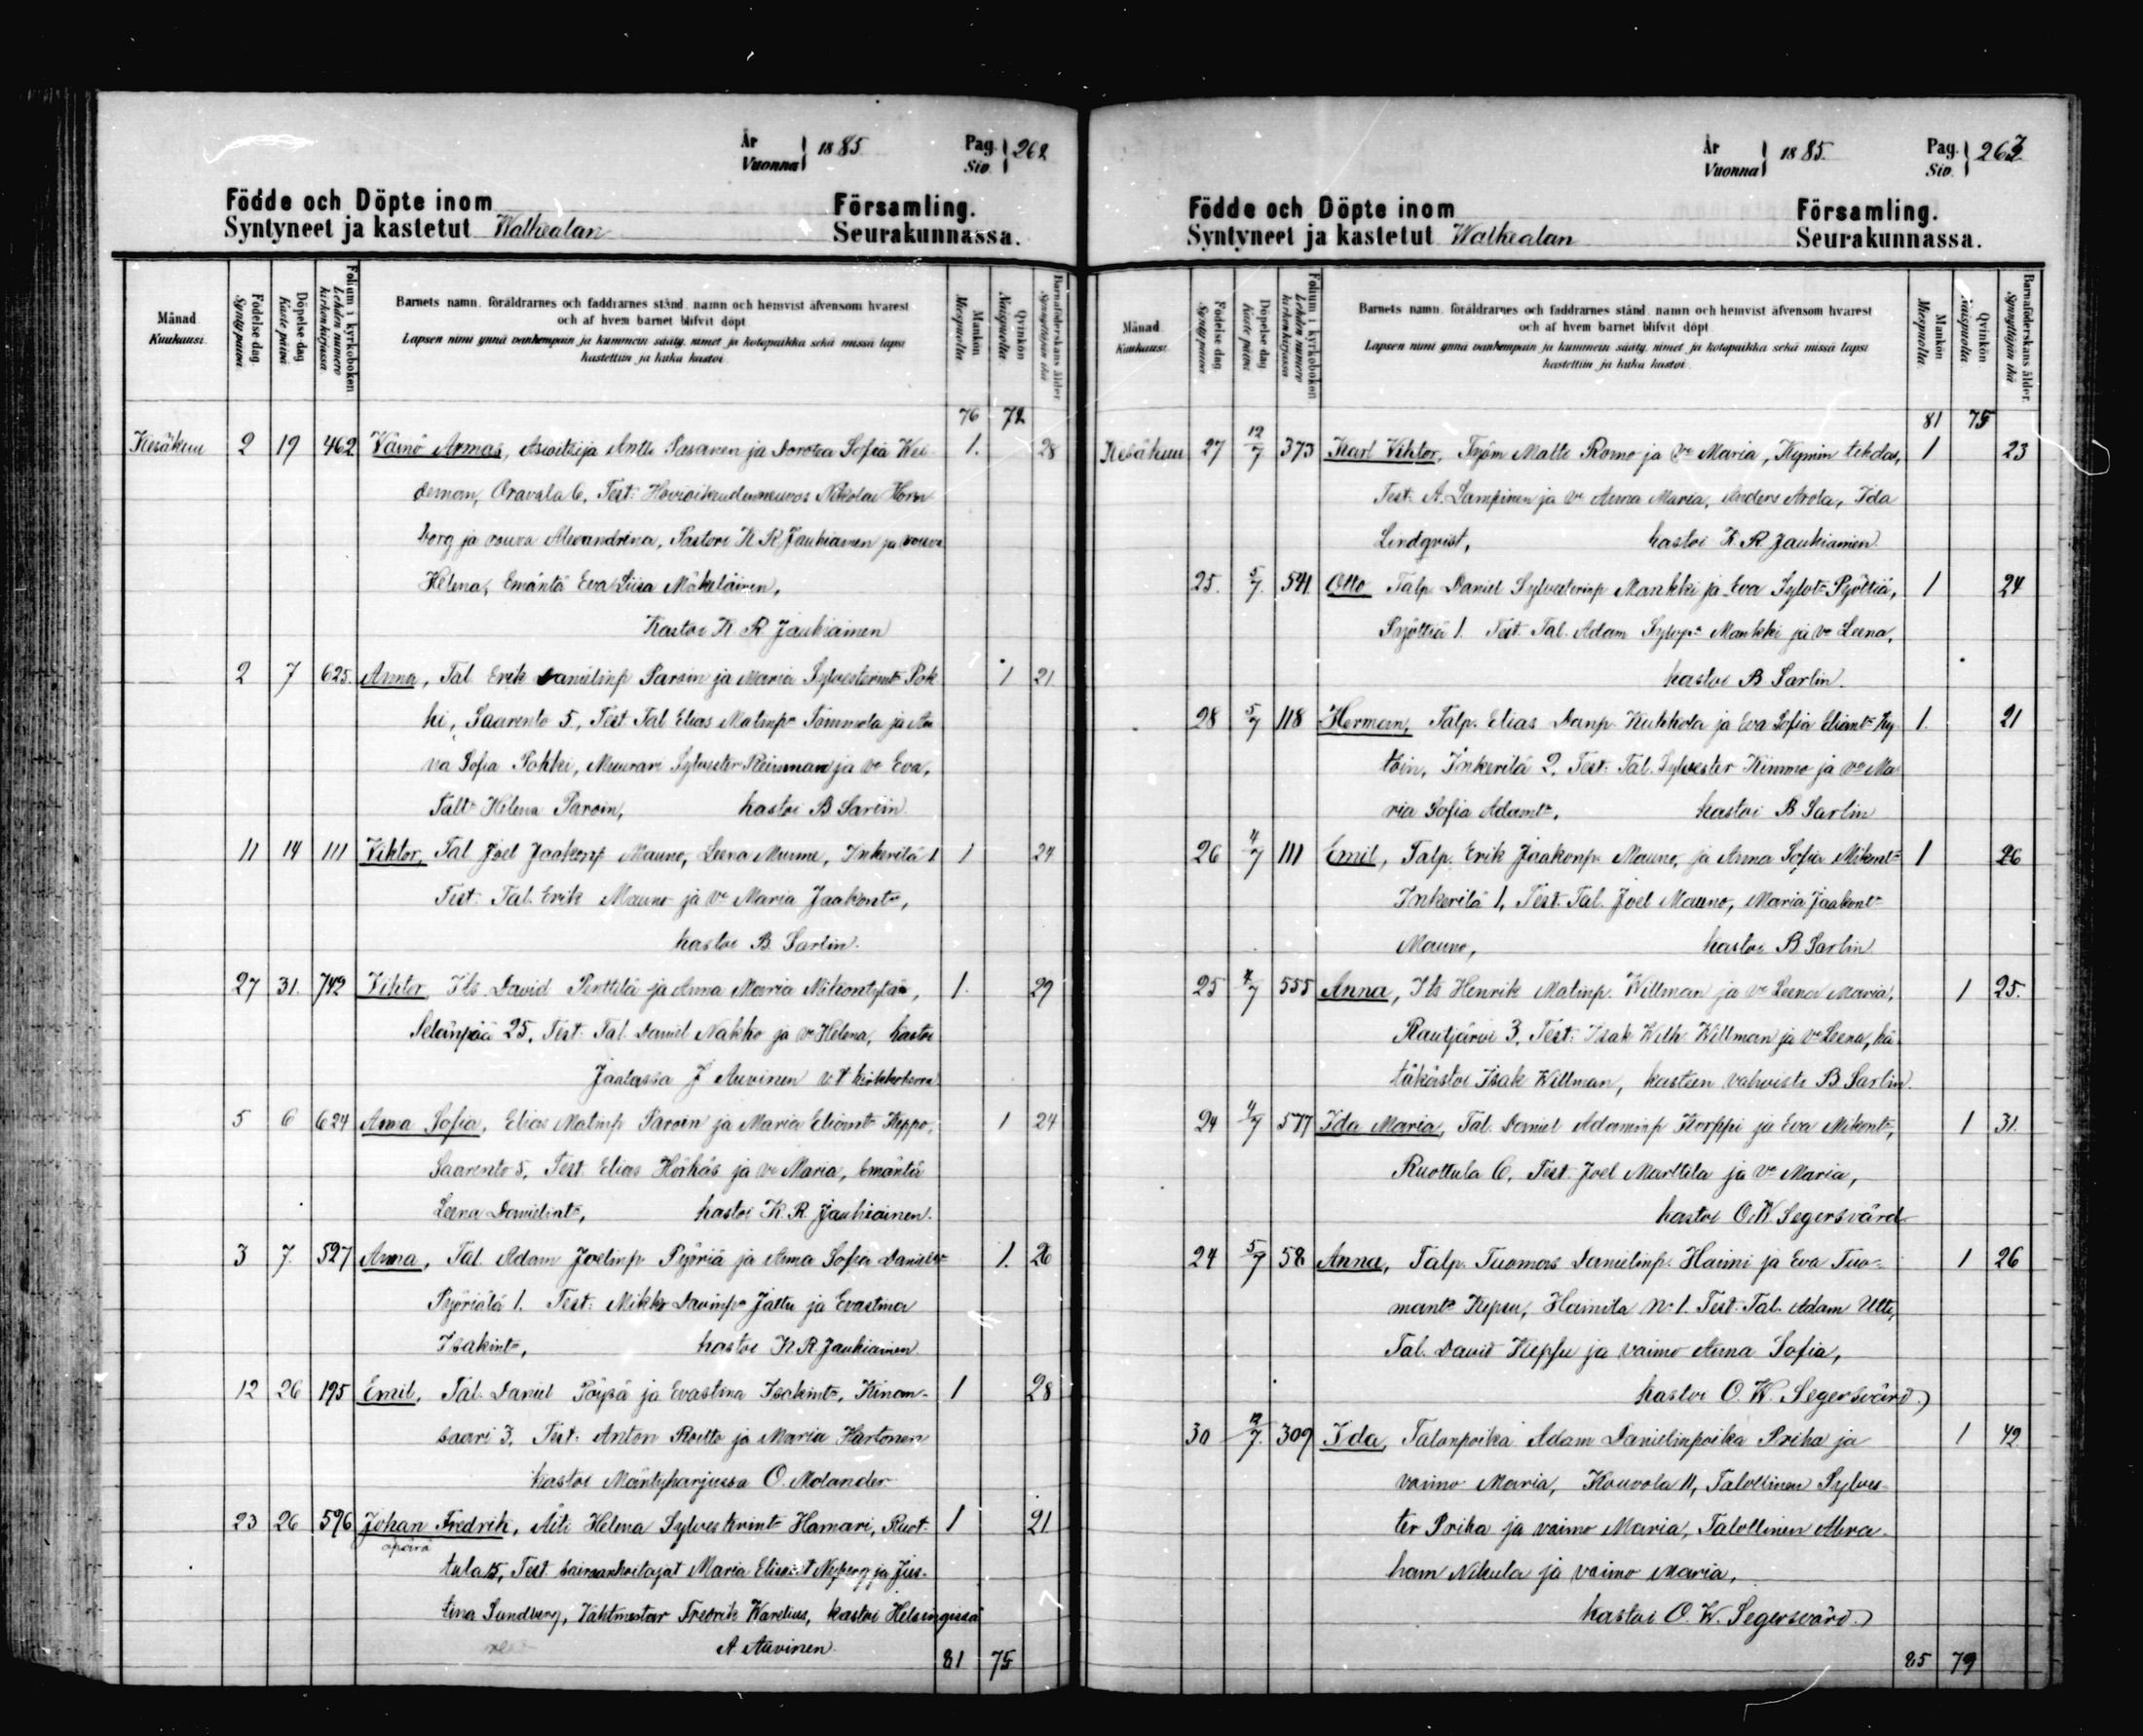 År Vuonna 1885 Pag. Siv. 262
Födde och Döpte inom Församling.
Syntyneet ja kastetut Walkealan Seurakunnassa.
Månad Kuukausi.
Födelse dag Synty päivä
Döpelse dag Kaste päivä
Folium i kyrkoboken Lehden numero kirkonkirjassa
Barnets namn, föräldrarnes och faddrarnes stånd, namn och hemvist äfvensom hvarest
och af hvem barnet blifvit döpt
Lapsen nimi ynnä vanhempain ja kummein sääty, nimet ja kotopaikka sekä missä lapsi
kastettiin ja kuka kastoi.
Mankön Miespuolia.
Qvinkön Naispuolia.
Barnaföderskans ålder Synnyttäjän ikä
76 72
Kesäkuu 2 19 462 Väinö Armas, Asioitsija Antti Pasanen ja Dorotea Sofia Wei- 1. 28
deman, Oravala 6, Test: Hovioikeudenneuvos Nikolai Horn
borg ja rouva Alexandrina, Pastori K R Jauhiainen ja rouva
Helena, Emäntä Eva Liisa Mäkeläinen,
Kastoi K. R. Jauhiainen
2 7 625. Anna, Tal Erik Danielinp Paroin ja Maria Sylvesterint Pok 1 21
ki, Saarento 5, Test Tal Elias Matinp Tommola ja An
na Sofia Pohki, Muurari Sylvester Reinman ja vo Eva,
Talt Helena Paroin, kastoi B Sarlin.
11 14 111 Viktor, Tal Joel Jaakonp Mauno, Leena Mumme, Inkerilä 1 1 24
Test: Tal. Erik Mauno ja vo Maria Jaakont,
kastoi B. Sarlin.
27 31. 742 Viktor Its. David Penttilä ja Anna Maria Mikontytär, 1. 29
Selänpää 25, Test: Tal. Daniel Nakko ja vo Helena, kastoi
Jaalassa J Auvinen v.t kirkkoherra
5 6 624 Anna Sofia, Elias Matinp Paroin ja Maria Eliant Keppo, 1 24
Saarento 5, Test. Elias Hörhäs ja vo Maria, Emäntä
Leena Danielint, kastoi K. R. Jauhiainen.
3 7. 527 Anna, Tal. Adam Joelinp Pyöriä ja Anna Sofia Danielt 1. 26
Pyöriälä 1. Test: Mikko Davinp Jattu ja Evastina
Isakint, kastoi K R Jauhiainen
12 26 195 Emil, Tal. Daniel Pöysä ja Evastina Isakint, Kinan- 1 28
saari 3, Test: Anton Roitto ja Maria Hartonen
kastoi Mäntyharjussa O. Molander
23 26 596 Johan Fredrik, Äiti Helena Sylvesterint Hamari, Ruot- 1 21
äpärä
tula 15, Test. Sairaanhoitajat Maria Elisabet Nyberg ja Jus-
tina Sundberg, Vahtmestar Fredrik Warelius, kastoi Helsingissä
A Auvinen.
81 75
År Vuonna 1885. Pag. Siv. 263
Födde och Döpte inom Församling.
Syntyneet ja kastetut Walkealan Seurakunnassa.
Månad Kuukausi.
Födelse dag Synty päivä
Döpelse dag Kaste päivä
Folium i kyrkoboken Lehden numero kirkonkirjassa
Barnets namn, föräldrarnes och faddrarnes stånd, namn och hemvist äfvensom hvarest
och af hvem barnet blifvit döpt.
Lapsen nimi ynnä vanhempain ja kummein sääty, nimet ja kotopaikka sekä missä lapsi
kastettiin ja kuka kastoi.
Mankön Miespuolia.
Qvinkön Naispuolia
Barnaföderskans ålder Synnyttäjän ikä
81 75
Kesäkuu 27 12/7 373 Karl Viktor, Työm Matti Romo ja vo Maria, Kymin tehdas, 1 23
Test: A. Lampinen ja vo Anna Maria, Anders Arola, Ida
Lindqvist, kastoi K. R. Jauhiainen.
25. 5/7. 541 Otto Talp Daniel Sylvesterinp Mankki ja Eva Sylvt Pyöttiä, 1 24
Pyöttiä 1. Test. Tal. Adam Sylvp Mankki ja vo Leena,
kastoi B. Sarlin.
28 5/7 118 Herman, Talp. Elias Danp. Kukkola ja Eva Sofia Eliant Ky- 1. 21
töin, Inkerilä 2, Test: Tal. Sylvester Kimmo ja vo Ma
ria Sofia Adamt, kastoi B Sarlin
26 4/7 111 Emil, Talp. Erik Jaakonp Mauno, ja Anna Sofia Mikont 1 26
Inkerilä 1, Test. Tal. Joel Mauno, Maria Jaakont
Mauno, kastoi B Sarlin
25 4/7 555 Anna, Its Henrik Matinp. Willman ja vo Leena Maria, 1 25.
Rautjärvi 3, Test: Isak Wilh Willman ja vo Leena, hä
täkastoi Isak Willman, kasteen vahvisti B. Sarlin.
24 4/7 577 Ida Maria, Tal. Daniel Adaminp Korppi ja Eva Mikont, 1 31.
Ruottula 6, Test. Joel Marttila ja vo Maria,
kastoi O. W. Segersvärd
24 5/7 58 Anna, Talp. Tuomas Danielinp. Haimi ja Eva Tuo- 1 26
mant Kepsu, Haimila No 1. Test: Tal. Adam Utti,
Tal. David Kepsu ja vaimo Anna Sofia,
kastoi O. W. Segersvärd.
30 12/7. 309 Ida, Talonpoika Adam Danielinpoika Priha ja 1 42
vaimo Maria, Kouvola 11, Talollinen Sylves-
ter Priha ja vaimo Maria, Talollinen Abra-
ham Nikula ja vaimo Maria,
kastoi O. W. Segersvärd.
85 79